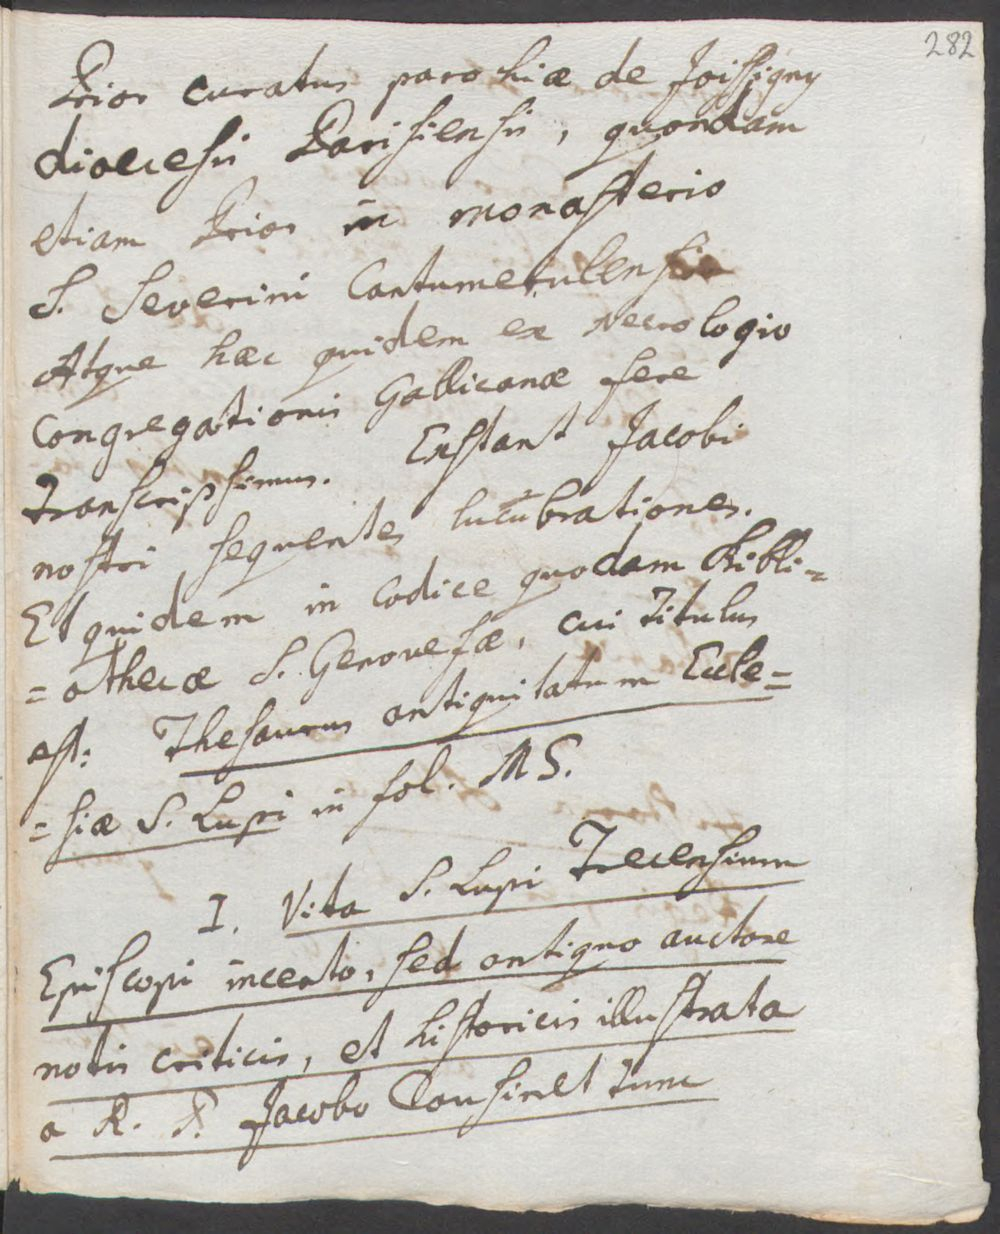 282
Prior curatus parochiæ de Joissigny
dioecesis Parisiensis, quondam
etiam Prior in monasterio
S. Severini Cantumerulensis
Atque hæc quidem ex Necrologio
Congregationis Gallicanæ fere
transcripsimus. Exstant Jacobi
nostri sequentes lucubrationes.
Et quidem in Codice quodam Bibli=
=othecæ S. Genovefæ, cui titulus
est: Thesaurus antiquitatum Eccle=
=siæ S. Lupi in fol. MS.
I. Vita S. Lupi Trecensium
Episcopi incerto, sed antiquo auctore
notis criticis, et historicis illustrata
a R. P. Jacobo Cousinet tunc